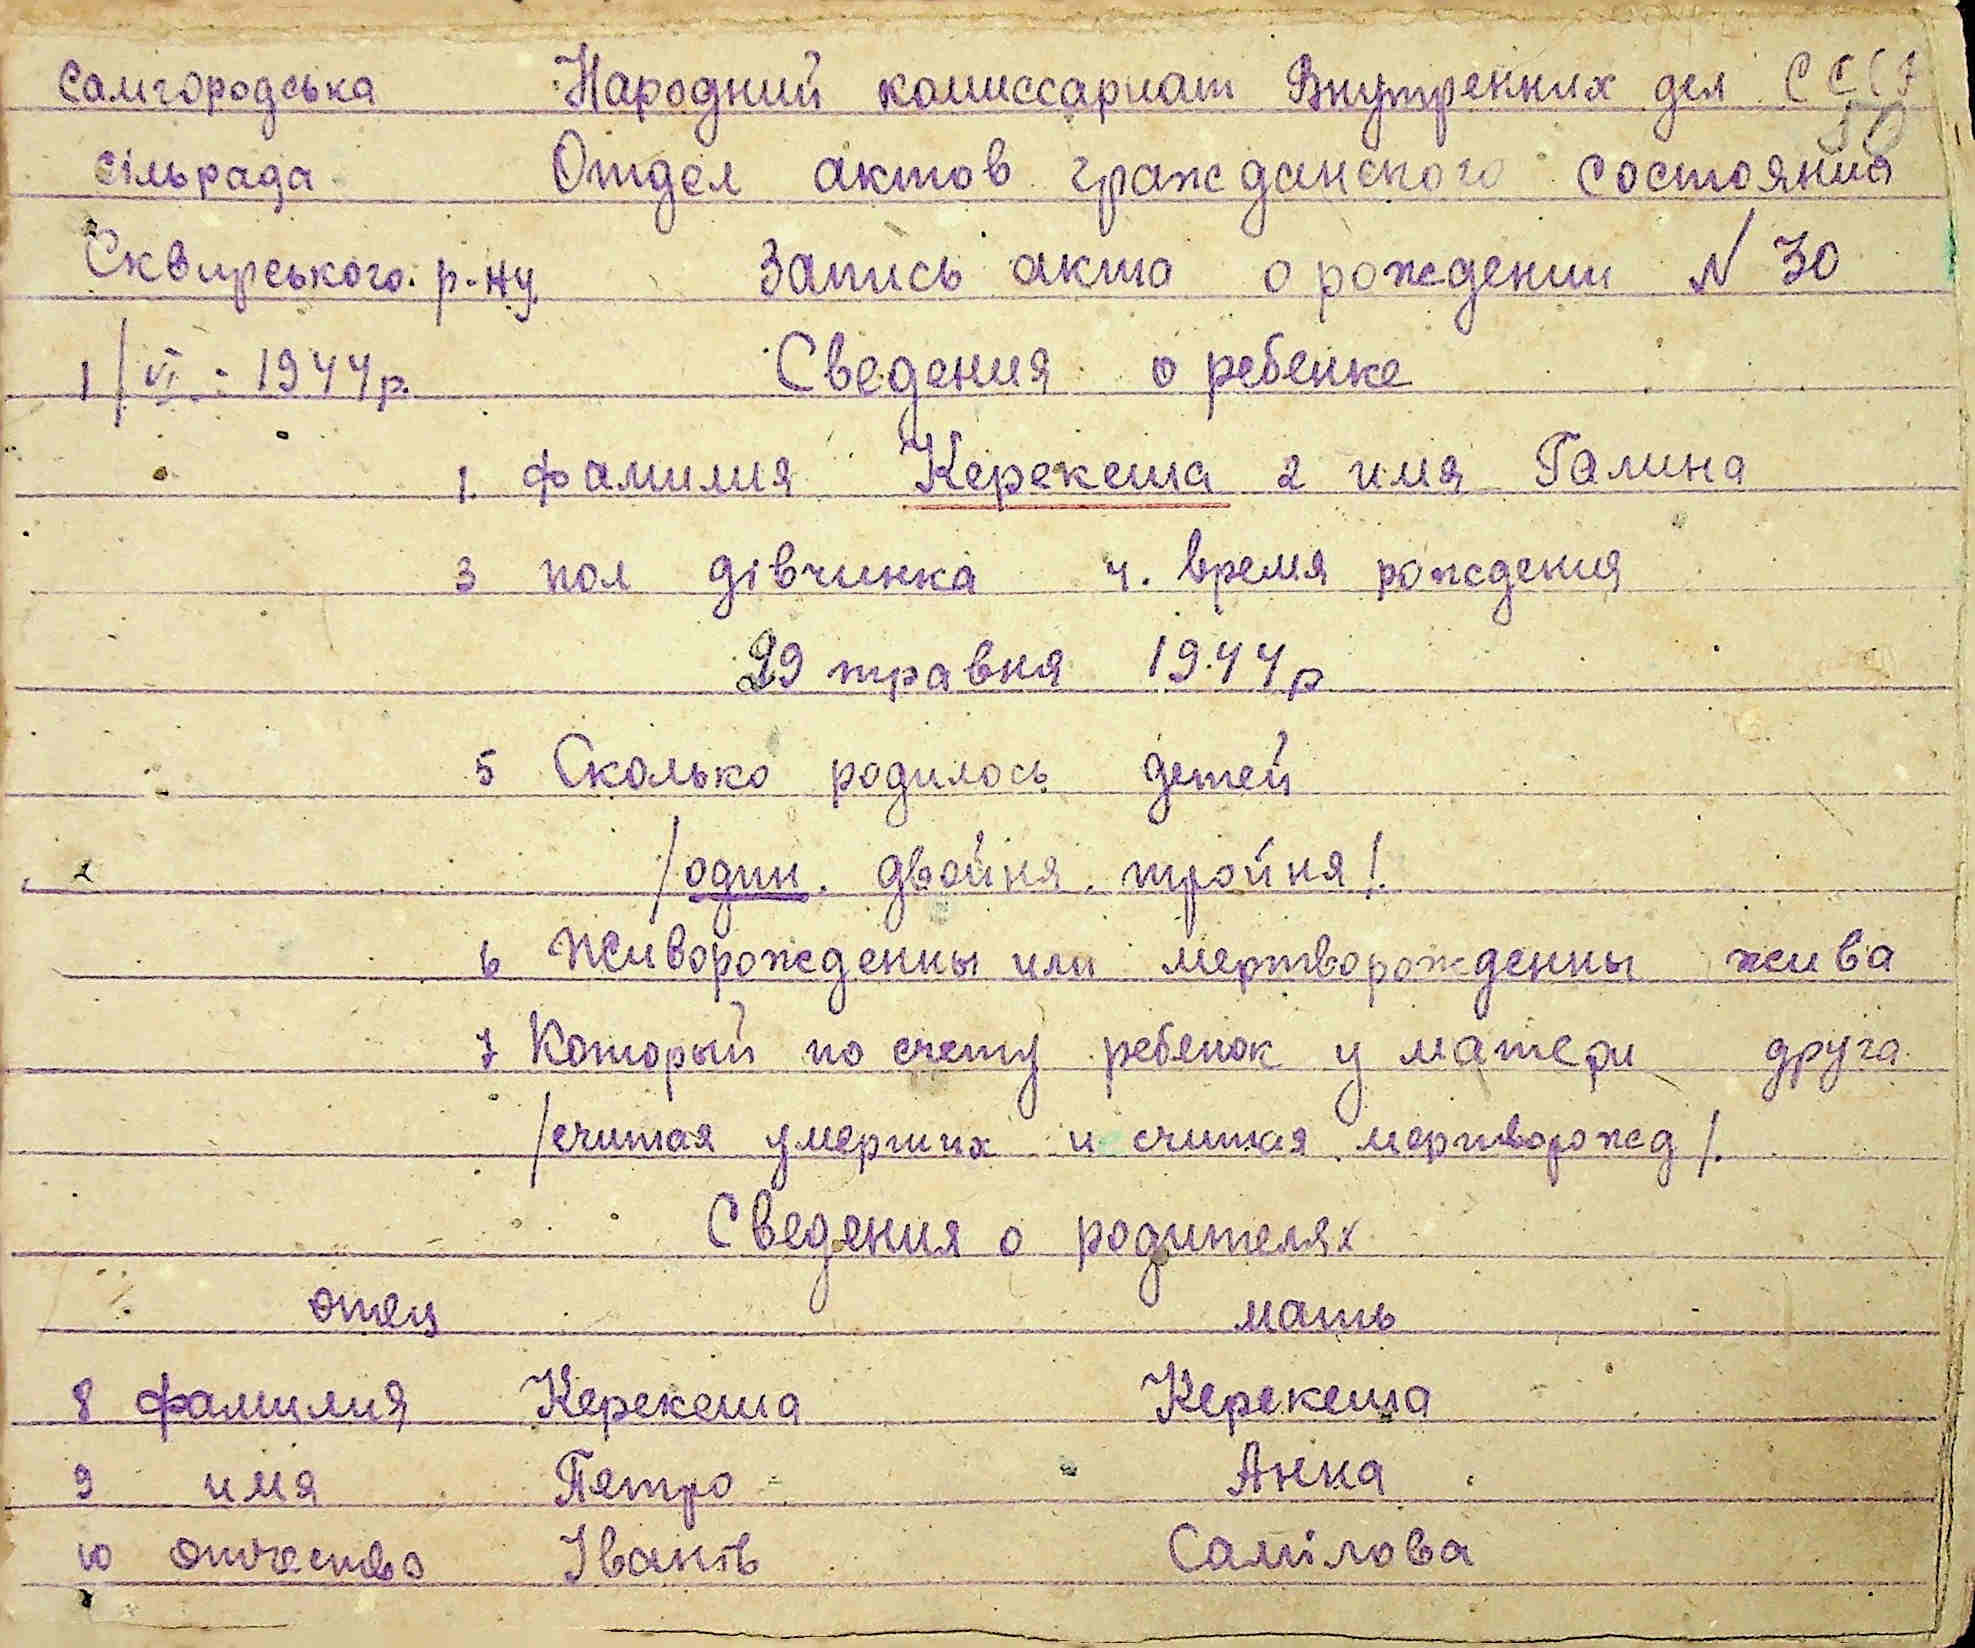 Самгородська Народний комиссариат Внутренних дел СССР
50
сільрада Отдел актов гражданского состояния
Сквирського р-ну Запись акта о рождении N 30
1/VI - 1944р. Сведения о ребенке
1. фамилия Керекеша 2 имя Галина
3 пол дівчинка 4. время рождения
29 травня 1944р
5 Сколько родилось детей
/один. двойня. тройня/.
6 Живорожденны или мертворожденны жива
7 Который по счету ребенок у матери друга
/считая умерших и считая мертворожд/.
Сведения о родителях
отец мать
8 фамилия Керекеша Керекеша
9 имя Петро Анна
10 отчество Іванів Самілова